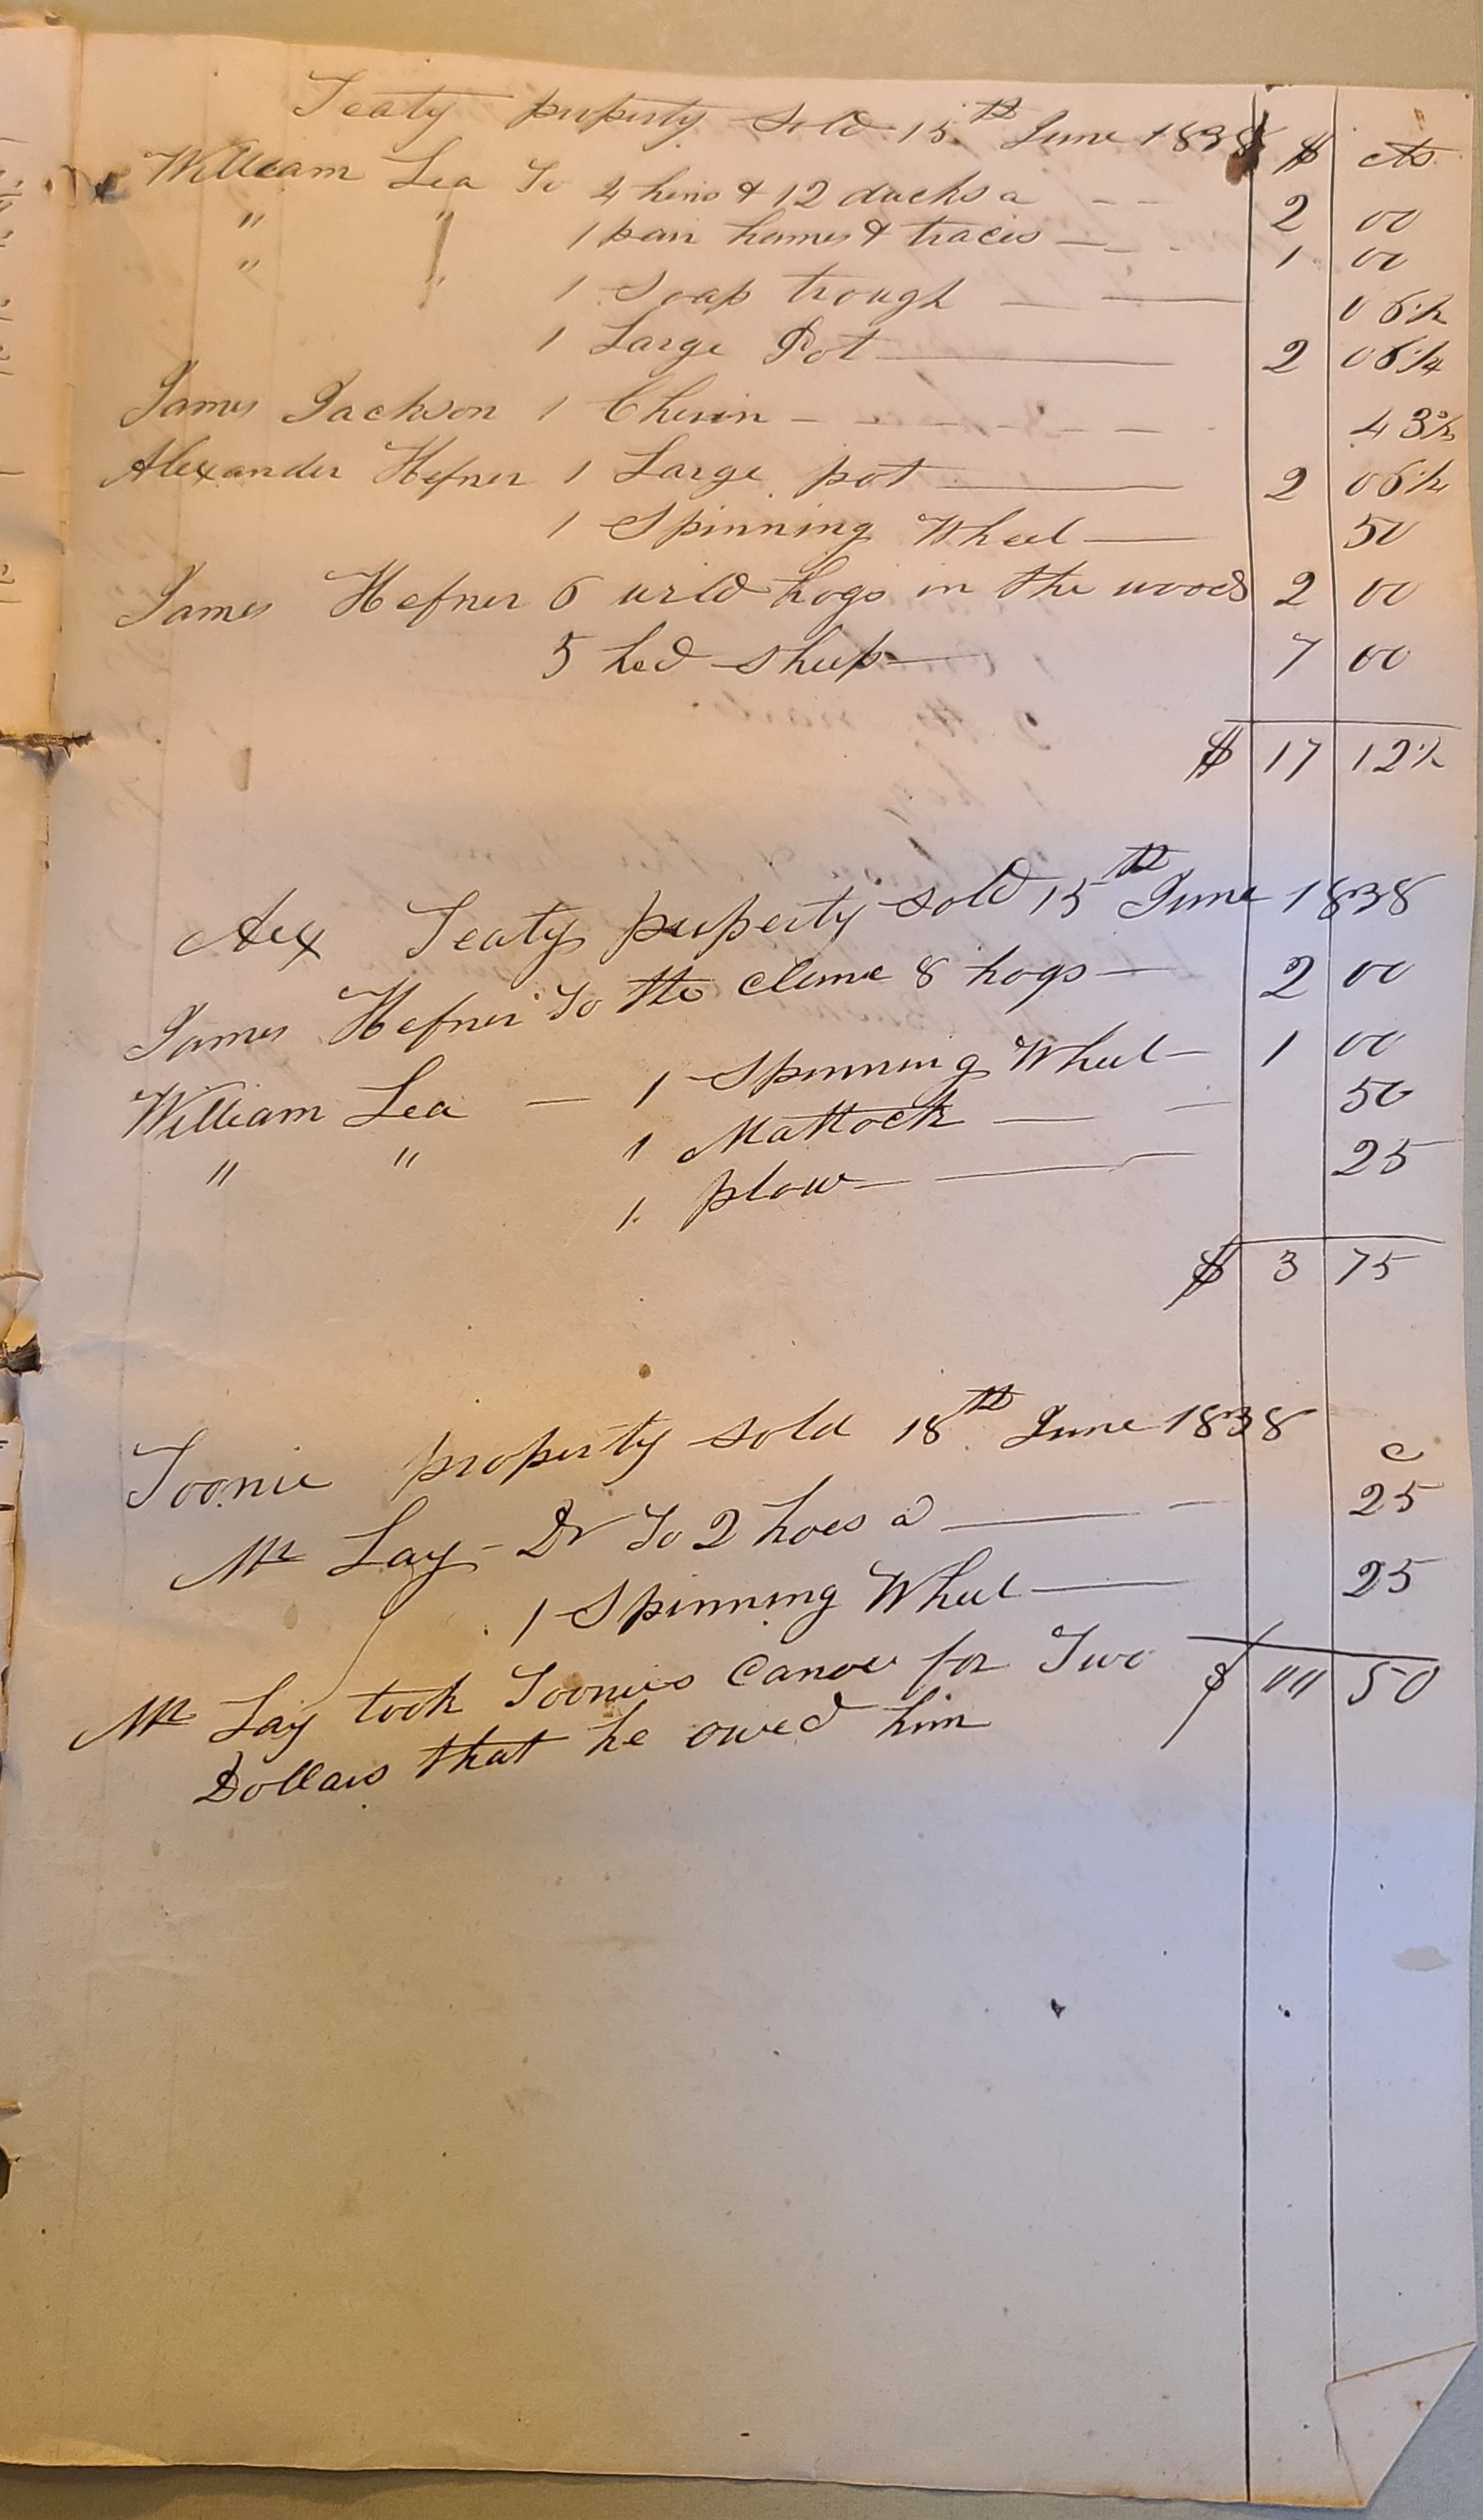 Teaty property sold 15th June 1838 $ cts
William Lea To 4 hens & 12 ducks a -- 2 00
" " 1 pair hames & traces -- 1 00
" " 1 Soap trough -- 06 1/4
1 Large Pot -- 2 06 1/4
James Jackson 1 Chern -- 43 3/4
Alexander Hefner 1 Large pot -- 2 06 1/4
1 Spinning Wheel -- 50
James Hefner 6 wild hogs in the woods 2 00
5 hed sheep -- 7 00
$ 17 12 1/2
Aex Teaty property sold 15th June 1838
James Hefner To the clime 8 hogs -- 2 00
William Lea -- 1 Spinning Wheel -- 1 00
" " 1 Mattock -- 50
1 plow -- 25
$ 3 75
Toonie property sold 18th June 1838 c
Mr Lay - Dr To 2 hoes a -- 25
1 Spinning Wheel -- 25
$ "" 50
Mr Lay took Toonies Canoe for Two
Dollars that he owed him